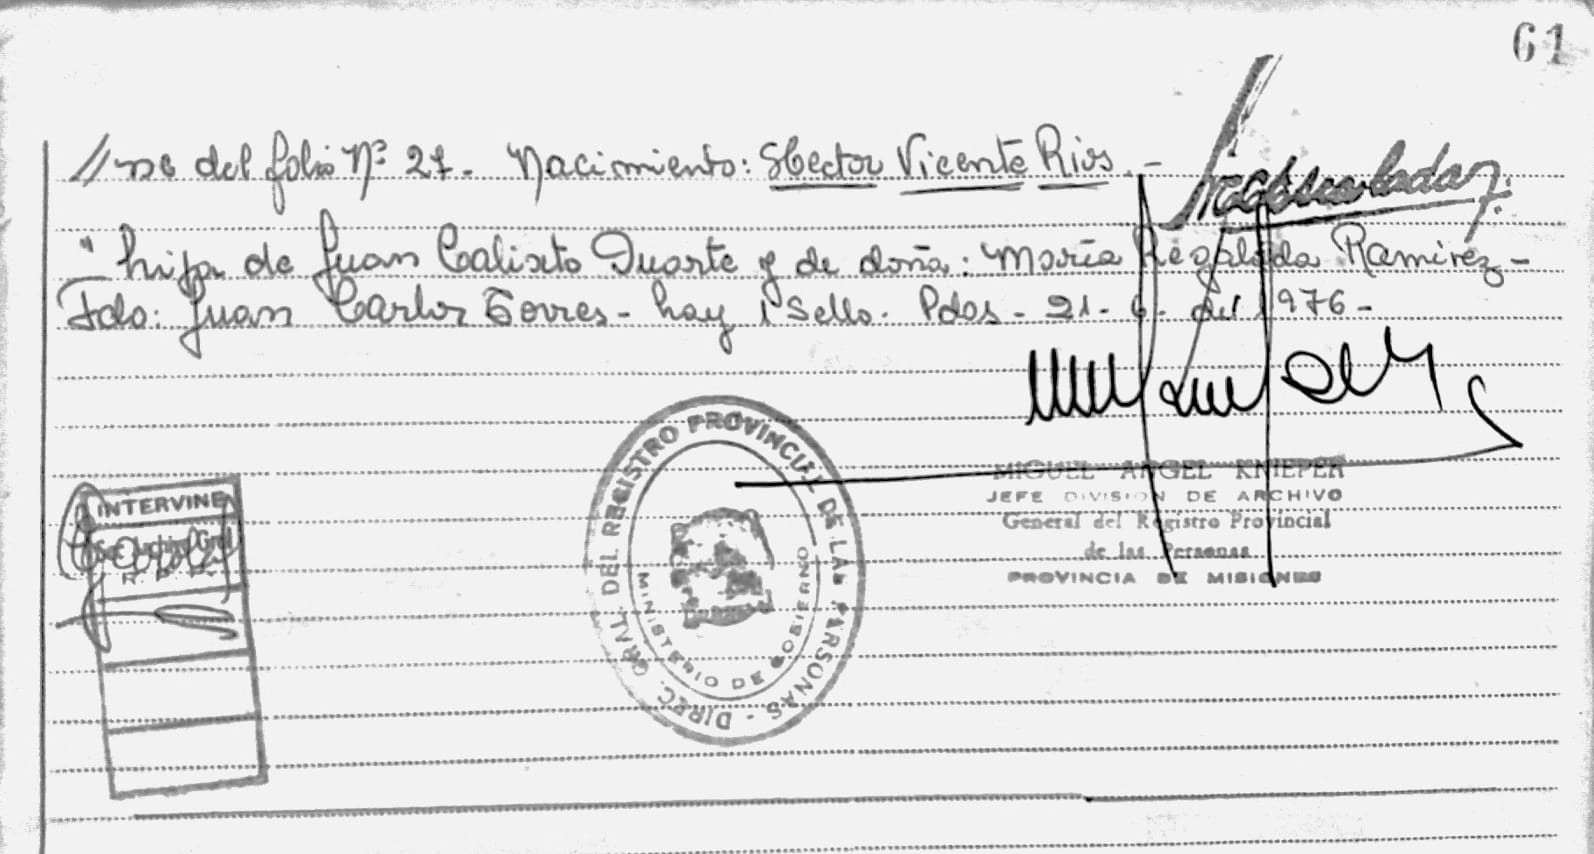 61
// ne del folio Nº 27. Nacimiento: Hector Vicente Rios. -
" hija de Juan Calixto Duarte y de doña: María Regalada Ramirez -
Fdo: Juan Carlos Torres - hay 1 Sello. Pdas - 21 - 6 - del 1976 -
MIGUEL ANGEL KNIEPER
JEFE DIVISION DE ARCHIVO
General del Registro Provincial
de las Personas
PROVINCIA DE MISIONES
DIREC. GRAL. DEL REGISTRO PROVINCIAL DE LAS PERSONAS -
MINISTERIO DE GOBIERNO
INTERVINE